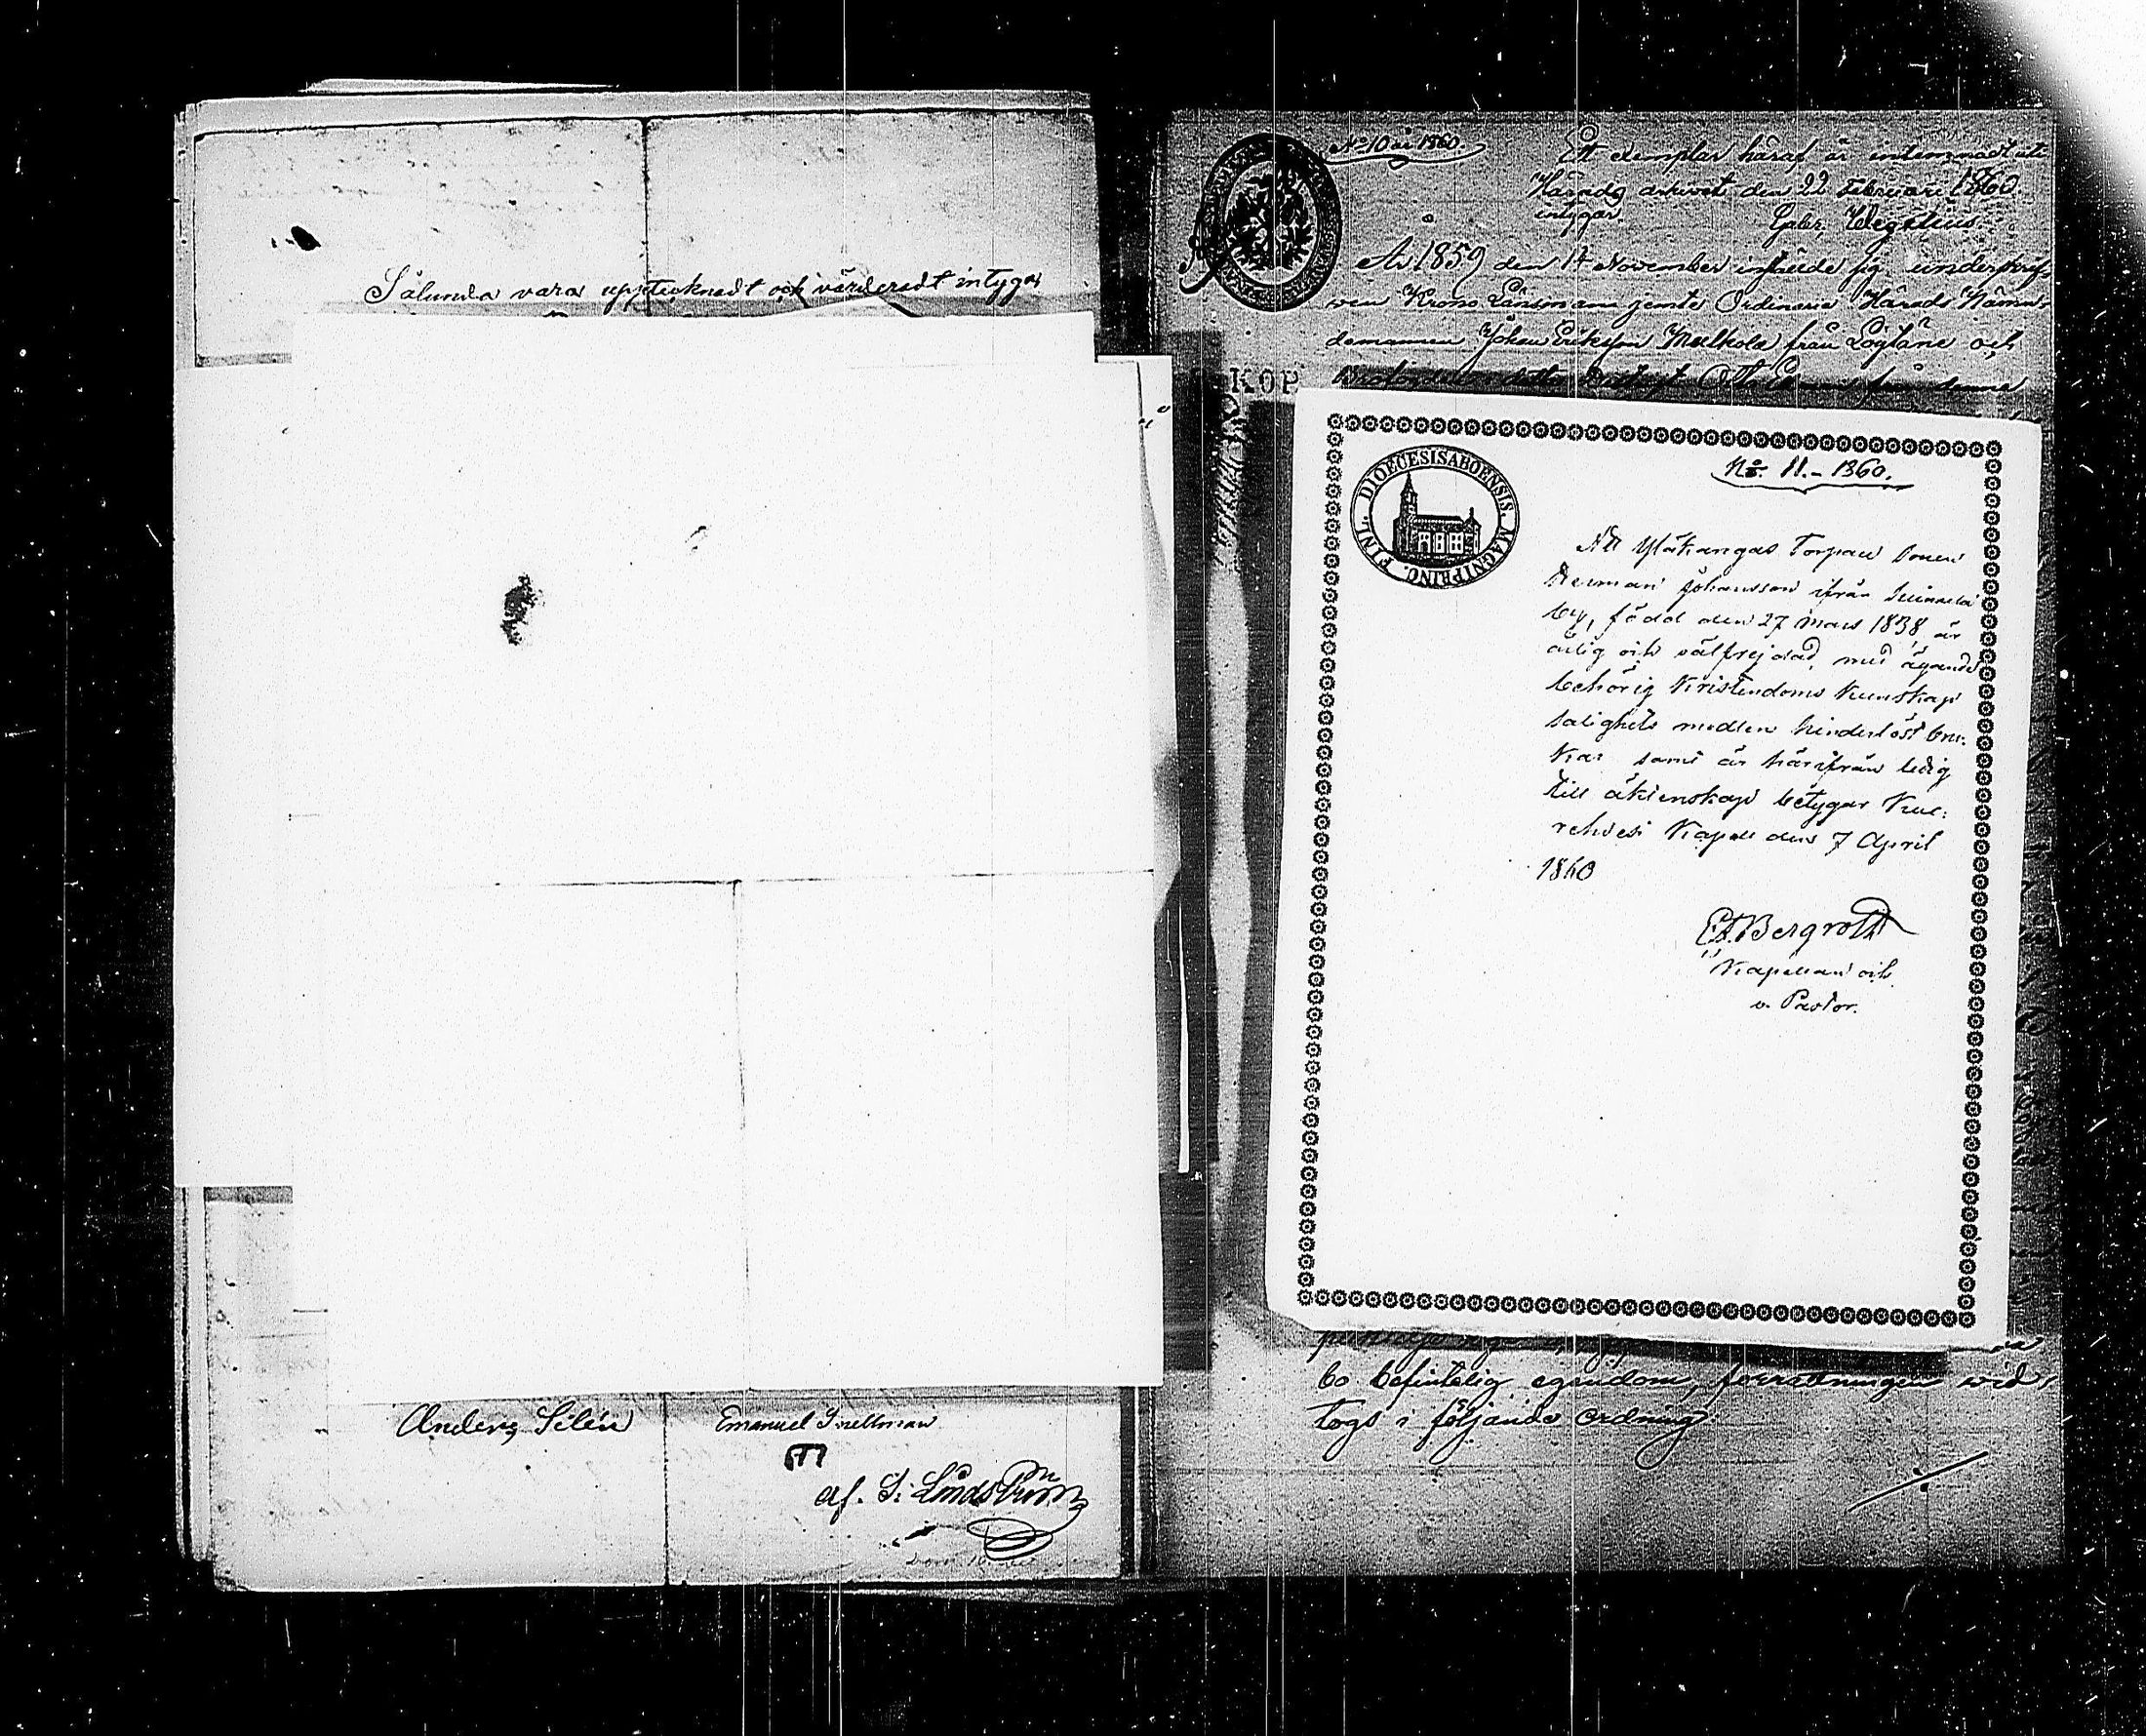 Sålunda vara upptecknadt och värderadt intygar
Anders Silén
Emanuel Snellman
af. S: Lindström
No 10 år 1860.
Ett exemplar häraf är inlemnadt uti
Härads arkivet den 22 Februari 1860.
intygar,
År 1859 den 14 November infunde sig underskref-
ven Krono Länsman jemte Ordinarie Härads Nämn-
demannen Johan Eriksson från och
KOP
FINL. DIOECESIS ABOENSIS. MAGNI PRINC.
No. 11.- 1860.
Att Ylikangas Torpare Sonen
Herman Johansson ifrån
by, född den 27 Mars 1838, är
ärlig och välfrejdad, med ägande
behörig Kristendoms Kunskap
salighets medlen hinderlöst bru-
kar samt är härifrån ledig
till äktenskap betygar Kue-
rehvesi Kapell den 7 April
1860
Bergroth
Kapellan och
v. Pastor.
bo befintelig egendom, förrättningen wid-
togs i följande ordning: